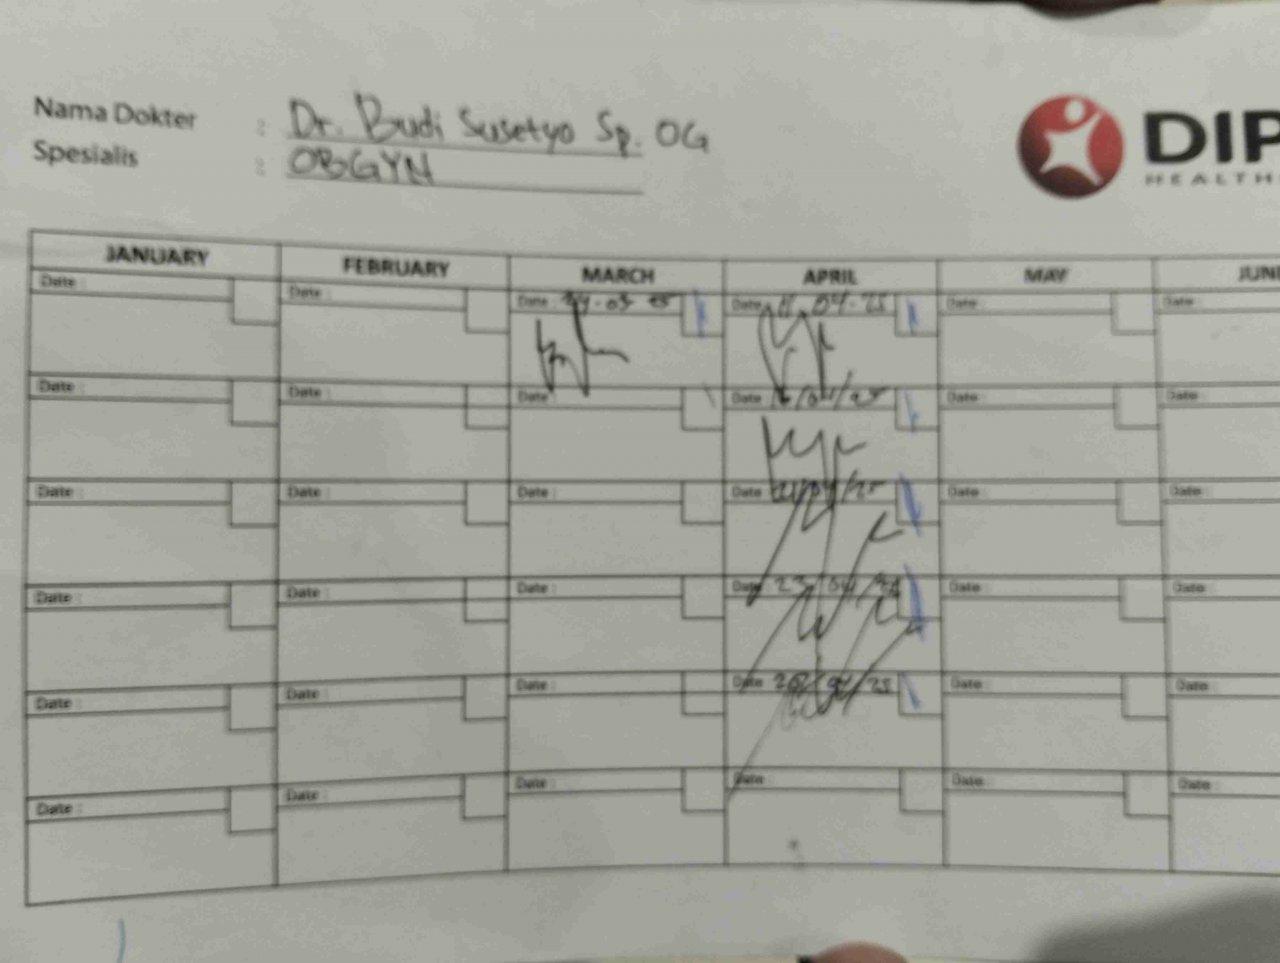 Nama Dokter : Dr. Budi Susetyo Sp. OG
Spesialis : OBGYN
DIP
HEALTH
JANUARY FEBRUARY MARCH APRIL MAY JUN
Date : Date : Date : Date : 11.04-25 Date : Date :
Date : Date : Date Date Date : Date :
Date : Date : Date : Date 21/04/25 Date : Date :
Date : Date : Date : Date 23/04/ Date : Date :
Date : Date : Date : Date 28/04/25 Date : Date :
Date : Date : Date : Date Date : Date :